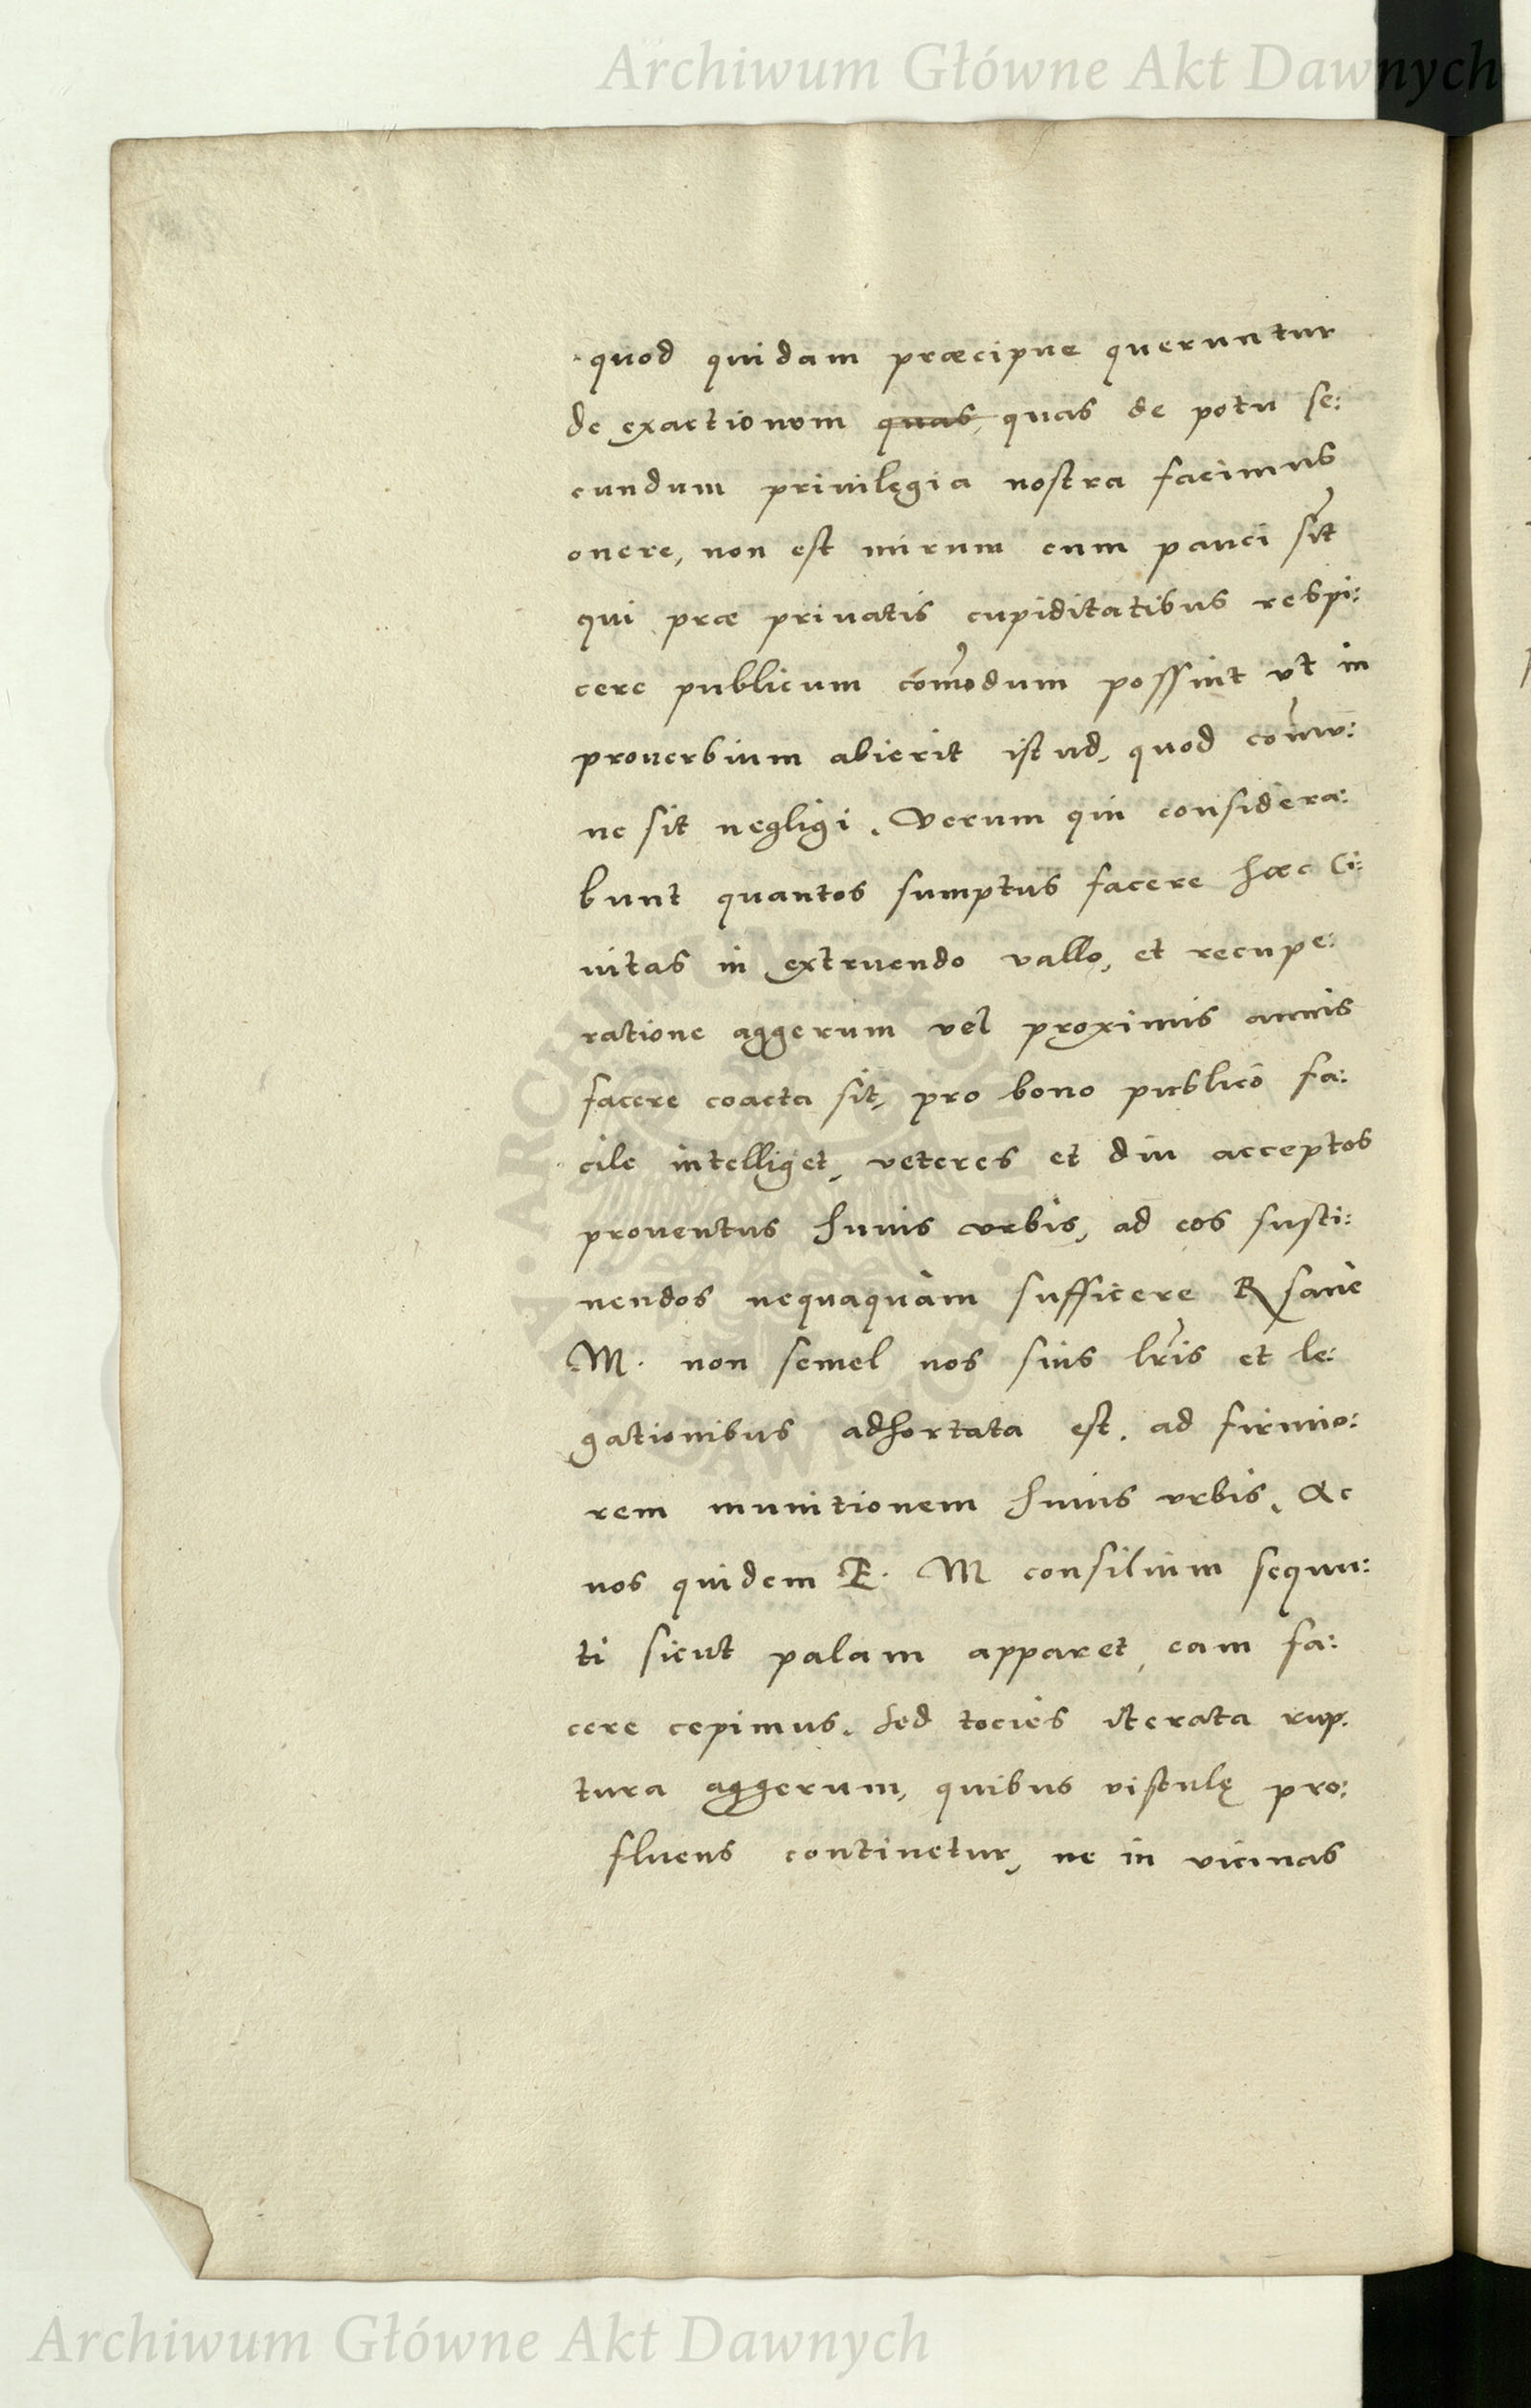 Archiwum Główne Akt Dawnych
quod quidam præcipue queruntur
de exactionom quas, quas de potu se:
cundum priuilęgia nostra facimus
onere, non est mirum cum pauci sĩt
qui præ priuatis cupiditatibus respi:
cere publicum com̃odum possint vt in
prouerbium abierit istud, quod com̃u:
ne sit negligi. Verum qui considera:
bunt quantos sumptus facere hæc Ci:
uitas in extruendo vallo, et recupe:
ratione aggerum vel proximis annis
facere coacta sit, pro bono publico fa:
cile intelliget, veteres et diu acceptos
prouentus huius vrbis, ad eos susti:
nendos nequaquàm sufficere R sane
M. non semel nos suis lr̃is et le:
gationibus adhortata est. ad firmio:
rem munitionem huius vrbis, Ac
nos quidem E. M consilium sequu:
ti sicut palam apparet, eam fa:
cere cepimus. Sed tocies iterata rup.
tura aggerum, quibus vistulę pro:
fluens continetur, ne in vicinas
ARCHIWUM GŁÓWNE AKT DAWNYCH
Archiwum Główne Akt Dawnych